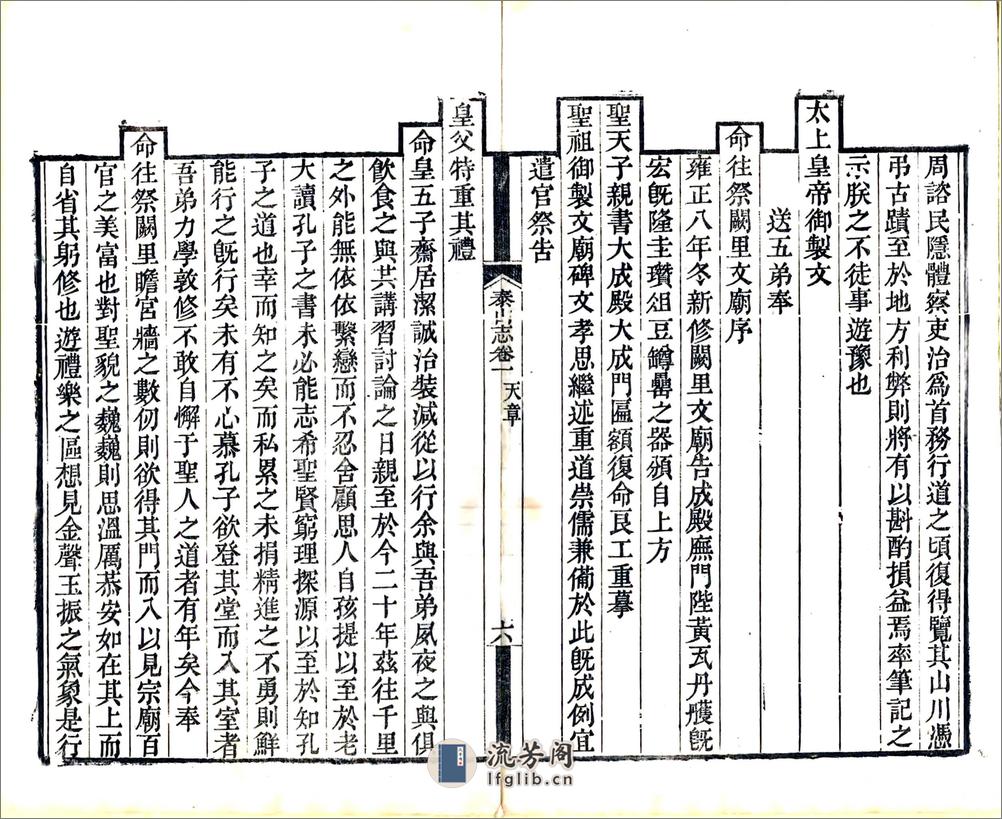 周諮民隱體察吏治爲首務行道之頃復得覽其山川憑
弔古蹟至於地方利弊則將有以斟酌損益焉率筆記之
示朕之不徒事遊豫也
太上皇帝御製文
送五弟奉
命往祭闕里文廟序
雍正八年冬新修闕里文廟告成殿廡門陛黃瓦丹雘旣
宏旣隆圭瓚俎豆鱒罍之器頒自上方
聖天子親書大成殿大成門匾額復命良工重摹
聖祖御製文廟碑文孝思繼述重道崇儒兼備於此旣成例宜
遣官祭告
泰山志卷一 天章 六
皇父特重其禮
命皇五子齋居潔誠治裝減從以行余與吾弟夙夜之與俱
飲食之與共講習討論之日親至於今二十年茲往千里
之外能無依依繫戀而不忍舍顧思人自孩提以至於老
大讀孔子之書未必能志希聖賢窮理探源以至於知孔
子之道也幸而知之矣而私累之未捐精進之不勇則鮮
能行之旣行矣未有不心慕孔子欲登其堂而入其室者
吾弟力學敦修不敢自懈于聖人之道者有年矣今奉
命往祭闕里瞻宮牆之數仞則欲得其門而入以見宗廟百
官之美富也對聖貌之巍巍則思溫厲恭安如在其上而
自省其躬修也遊禮樂之區想見金聲玉振之氣象是行
流芳阁
lfglib.cn